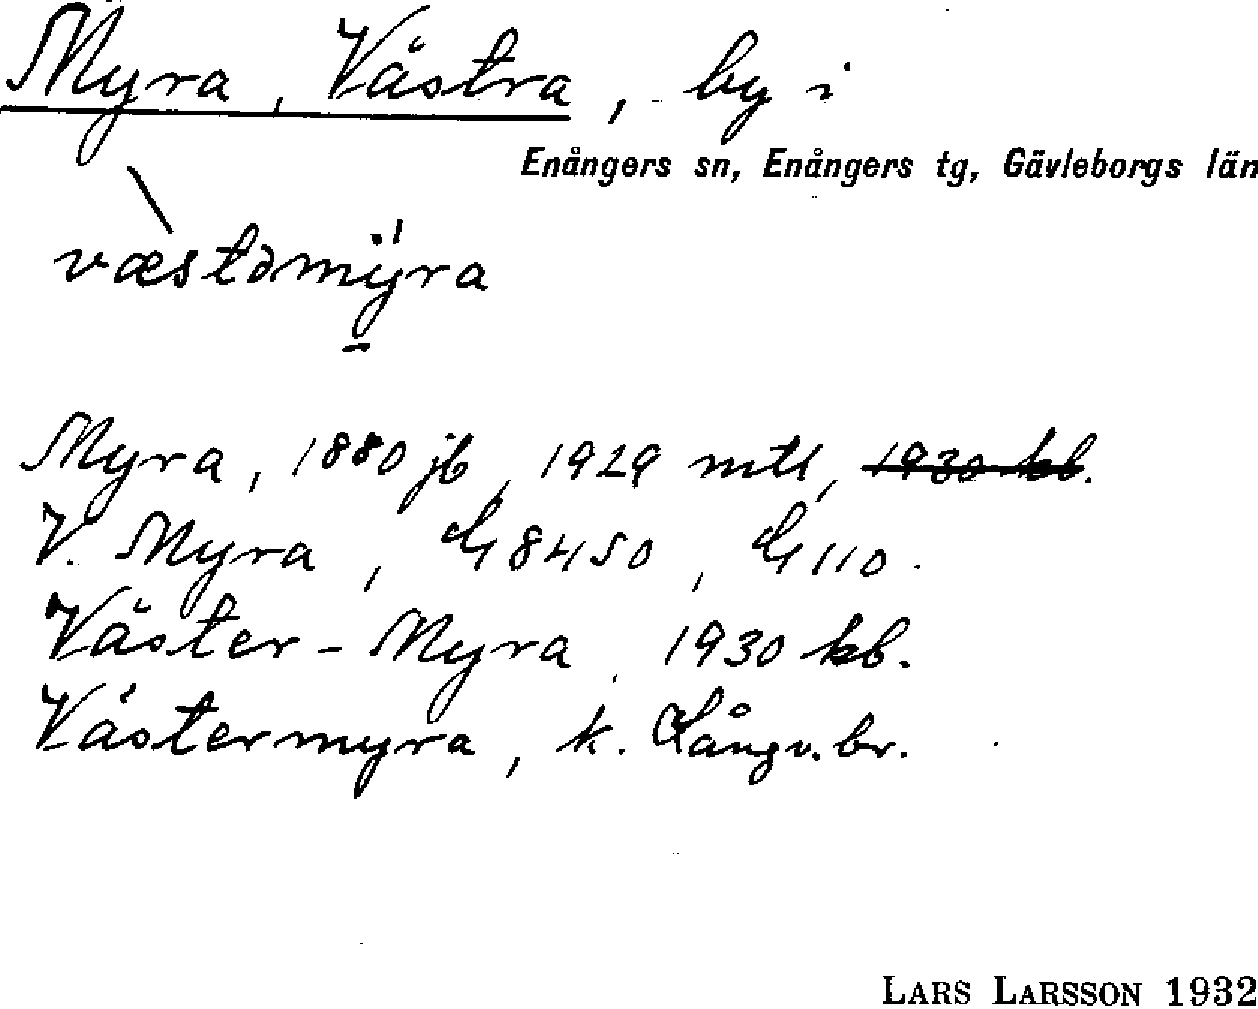 Myra, Västra, by i
Enångers sn, Enångers tg, Gävleborgs län
væstəmÿra
Myra, 1880 jb, 1929 mtl, 1930 kb.
V. Myra, G 8450, G 110.
Väster-Myra, 1930 kb.
Västermyra, k. Långv. br.
LARS LARSSON 1932